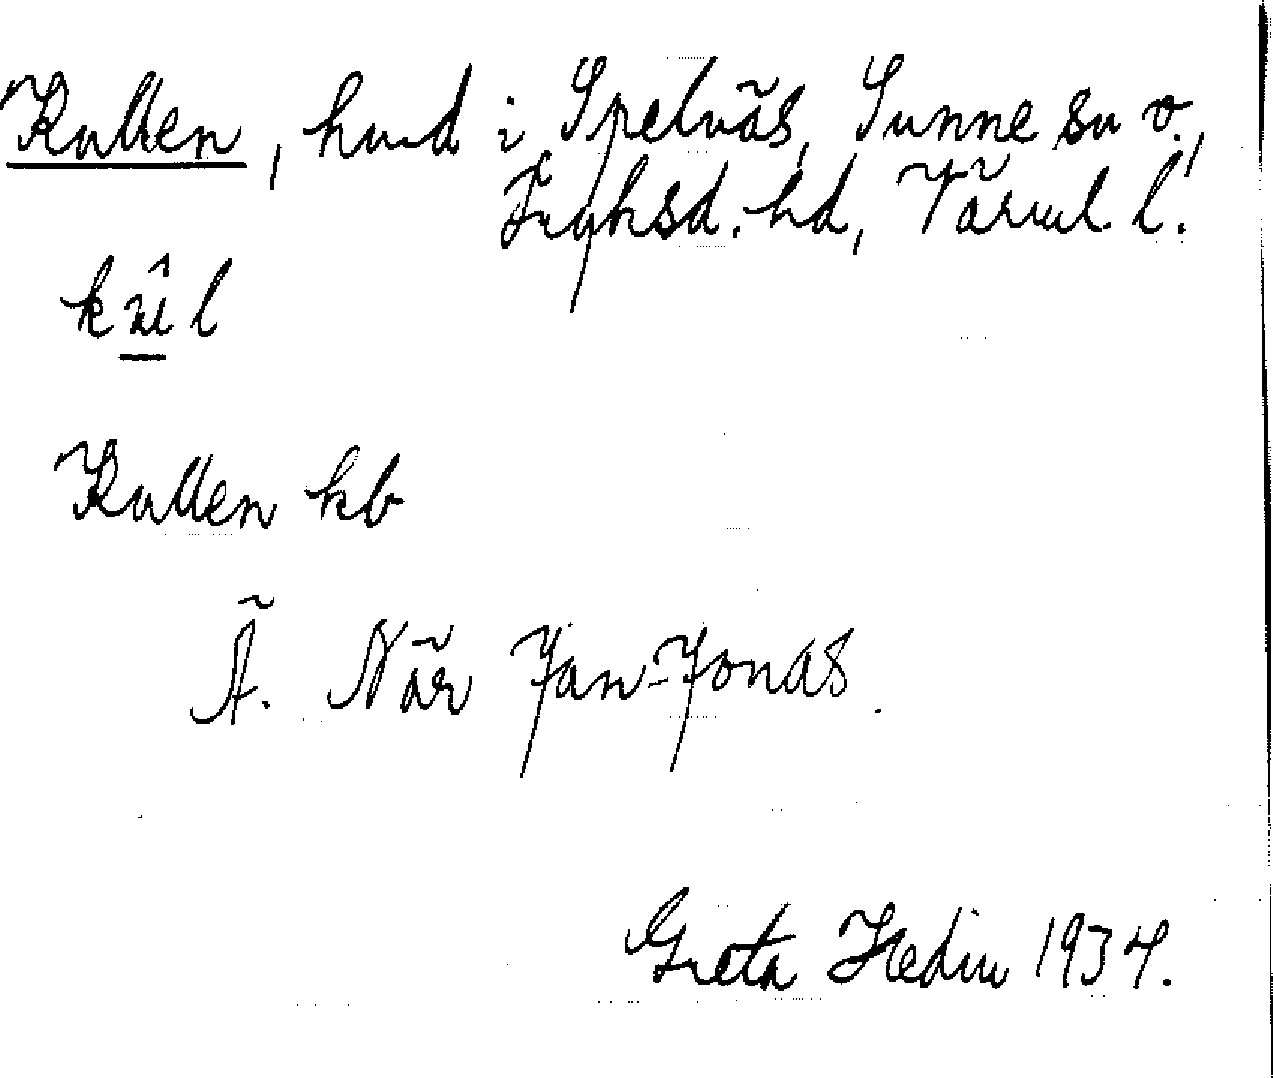 Kullen, hmd i Spelnäs, Sunne sn o.,
Fryksd. hd, Värml. l.
kûl
Kullen kb
Ä. När Jan-Jonas.
Greta Hedin 1934.